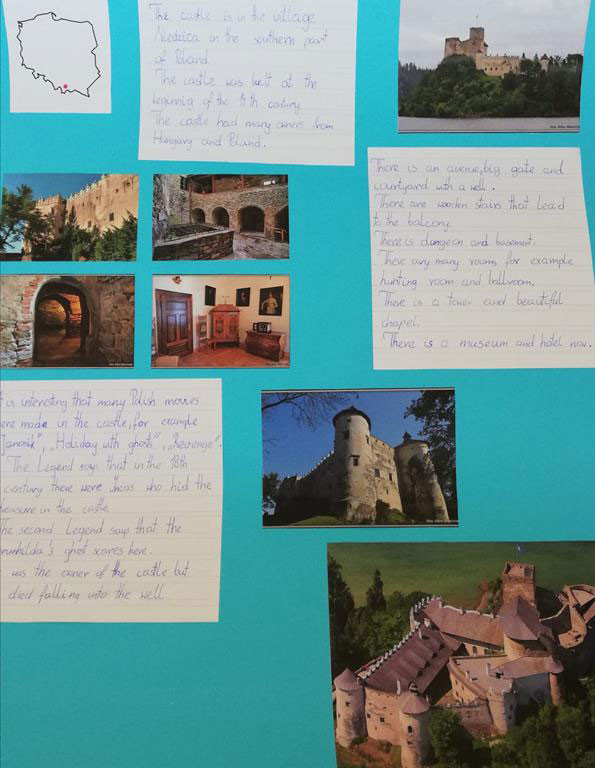 The castle is in the village
Niedzica in the southern part
of Poland.
The castle was built at the
beginnig of the 14th century.
The castle had many owners from
Hungary and Poland.
There is an avenue, big gate and
courtyard with a well.
There are wooden stairs that lead
to the balcony.
There is dungeon and basement.
There are many rooms for example
hunting room and ballroom.
There is a tower and beautiful
chapel.
There is a museum and hotel now.
t is interesting that many Polish movies
ere made in the castle, for example
Janosik", „Holiday with ghosts", „Revenge".
The Legend says that in the 18th
century there were Incas who hid the
treasure in the castle.
The second Legend says that the
runhilda's ghost scares here.
was the owner of the castle but
died falling into the well